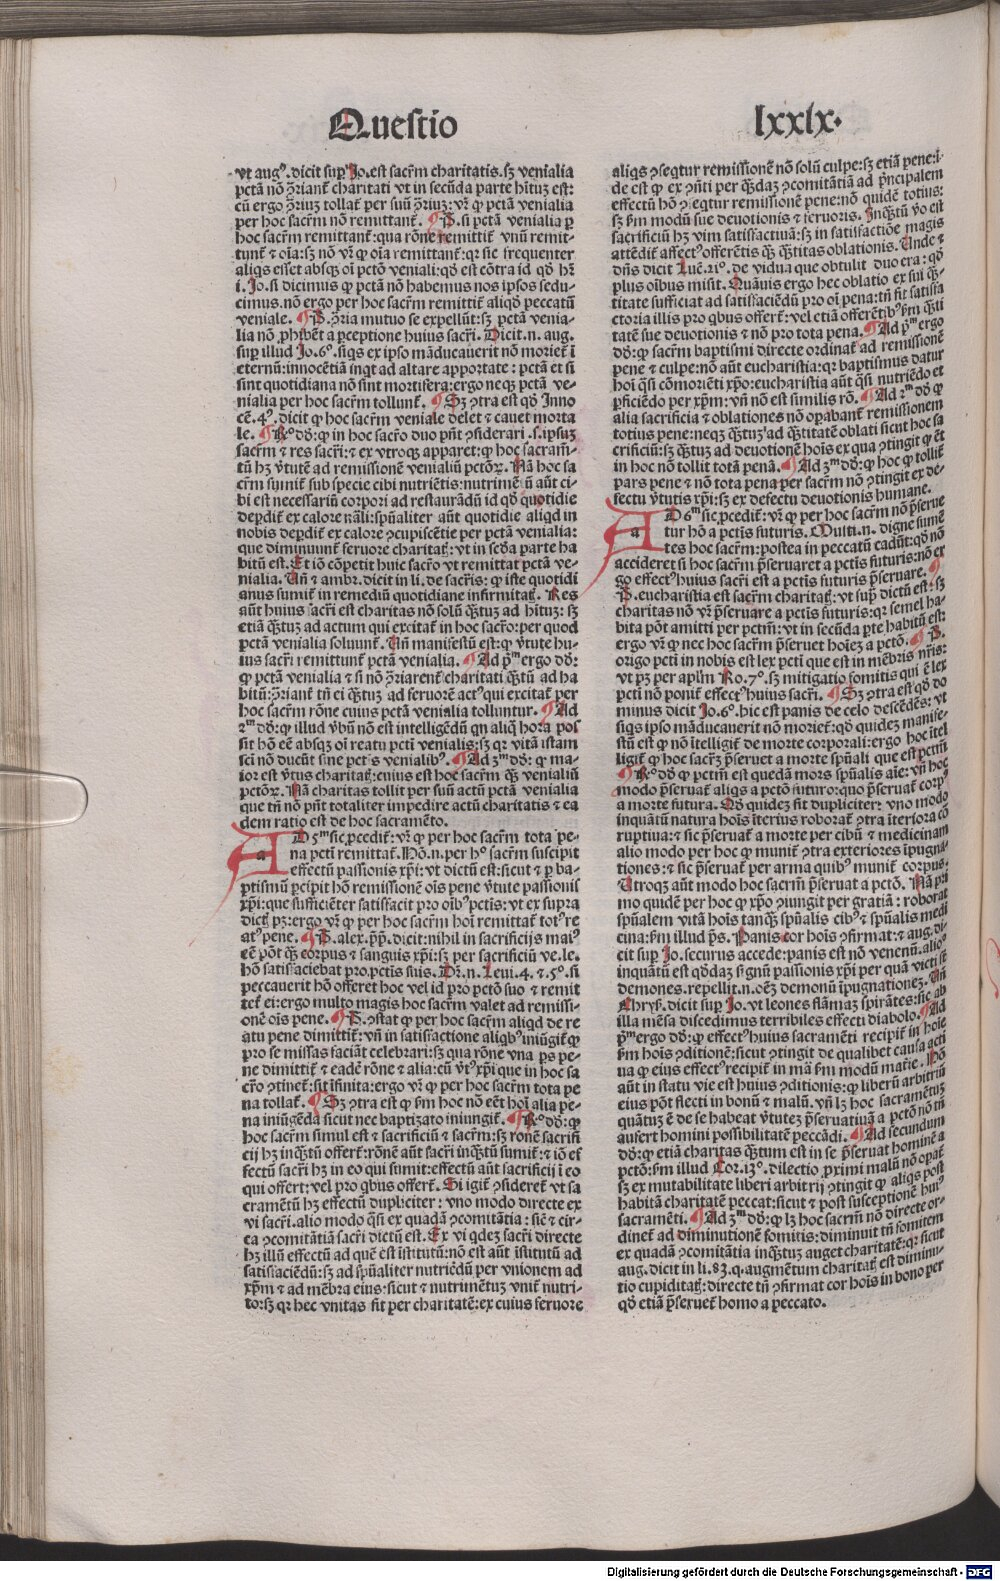 Questio
lxxlx.
vt augꝰ. dicit suꝑ Jo. est sacr̃m charitatis. sꝫ venialia
pctā nō ↄ̃riant᷑ charitati vt in secūda parte hītuꝫ est:
cū ergo ↄ̃riuꝫ tollat᷑ per suū ↄ̃riuꝫ: vr̄ ꝙ pctā venialia
per hoc sacr̃m nō remittant᷑. ¶ P. si pctā venialia ꝑ
hoc sacr̃m remittant᷑: qua rōne remittit᷑ vnū remit-
tunt᷑ ⁊ oīa: sꝫ nō vr̄ ꝙ oīa remittant᷑: qꝛ sic frequenter
aliqs esset absqꝫ oī pctō veniali: qd̄ est cōtra id qd̄ hr̄
i. Jo. si dicimus ꝙ pctā nō habemus nos ipsos sedu-
cimus. nō ergo per hoc sacr̃m remittit᷑ aliqd̄ peccatū
veniale. ¶ P. ↄ̃ria mutuo se expellūt: sꝫ pctā venia-
lia nō ꝓhibēt a ꝑceptione huius sacr̃i. Dicit. n. aug.
suꝑ illud Jo. 6°. siqs ex ipso māducauerit nō moriet᷑ ī
eternū: innocētiā inqt ad altare apportate: pctā et si
sint quotidiana nō sint mortifera: ergo neqꝫ pctā ve-
nialia per hoc sacr̃m tollunt᷑. ¶ Sꝫ ↄtra est qd̄ Inno
cē. 4ꝰ. dicit ꝙ hoc sacr̃m veniale delet ⁊ cauet morta
le. ¶ R° dd̄: ꝙ in hoc sacr̃o duo pn̄t ↄsiderari .s. ipsuꝫ
sacr̃m ⁊ res sacr̃i: ⁊ ex vtroqꝫ apparet: ꝙ hoc sacram̄-
tū hꝫ v̄tutē ad remissionē venialiū pctōꝝ. Nā hoc sa
cr̃m sumit᷑ sub specie cibi nutriētis: nutrimē ū aūt ci-
bi est necessariū corpori ad restaurādū id qd̄ quotidie
deꝑdit᷑ ex calore nāli: spūaliter aūt quotidie aliqd in
nobis deꝑdit᷑ ex calore ↄcupiscētie per pctā venialia:
que diminuunt᷑ feruorē charitatꝭ: vt in secda parte ha
bitū est. Et iō cōpetit huic sacr̃o vt remittat᷑ pctā ve-
nialia. Un̄ ⁊ ambr. dicit in li. de sacr̃is: ꝙ iste quotidi
anus sumit᷑ in remediū quotidiane infirmitatꝭ. Res
aūt huius sacr̃i est charitas nō solū q̄ꝫtuꝫ ad hituꝫ: sꝫ
etiā q̄ꝫtuꝫ ad actum qui excitat᷑ in hoc sacr̃o: per quod
pctā venialia soluunt᷑. Un̄ manifestū est: ꝙ v̄tute hu-
ius sacr̃i remittunt᷑ pctā venialia. ¶ Ad pᵐ ergo dd̄:
ꝙ pctā venialia ⁊ si nō ↄ̃riarent᷑ charitati q̄ꝫtū ad ha
bitū: ↄ̃riant᷑ tn̄ ei q̄ꝫtuꝫ ad feruorē actꝰ qui excitat᷑ per
hoc sacr̃m rōne cuius pctā venialia tolluntur. ¶ Ad
2ᵐ dd̄: ꝙ illud v̄bū nō est intelligēdū qn aliq̄ hora pos
sit hō eē absqꝫ oī reatu pcti venialis: sꝫ qꝛ vitā istam
sc̄i nō ducūt sine pctꝭs venialibꝰ. ¶ Ad 3ᵐ dd̄: ꝙ ma-
ior est v̄tus charitatꝭ: cuius est hoc sacr̃m q̄ꝫ venialiū
pctōꝝ. Nā charitas tollit per suū actū pctā venialia
que tn̄ nō pn̄t totaliter impedire actū charitatis ⁊ ea
dem ratio est de hoc sacramēto.
AD 5ᵐ sic ꝓcedit᷑: vr̄ ꝙ per hoc sacr̃m tota pe-
na pcti remittat᷑. Hō. n. per h° sacr̃m suscipit
effectū passionis xp̄i: vt dictū est: sicut ⁊ ꝑ ba-
ptismū ꝑcipit hō remissionē oīs pene v̄tute passionis
xp̄i: que sufficiēter satisfacit pro oībꝰ pctīs: vt ex supra
dictꝭ pꝫ: ergo vr̄ ꝙ per hoc sacr̃m hoī remittat᷑ totꝰ re
atꝰ pene. ¶ P. alex. pp̄. dicit: nihil in sacrificijs maiꝰ
eē pōt q̄ꝫ corpus ⁊ sanguis xp̄i: sꝫ per sacrificiū ve. le.
hō satisfaciebat pro pctīs suis. Dr̄. n. Leui. 4. ⁊ 5°. si
peccauerit hō offeret hoc vel id pro pctō suo ⁊ remit
tet᷑ ei: ergo multo magis hoc sacr̃m valet ad remissi-
onē oīs pene. ¶ P. ↄstat ꝙ per hoc sacr̃m aliqd de re
atu pene dimittit᷑: vn̄ in satisfactione aliqbꝰ iniūgit᷑ ꝙ
pro se missas faciāt celebrari: sꝫ qua rōne vna ꝑs pe-
ne dimittit᷑ ⁊ eadē rōne ⁊ alia: cū v̄tꝰ xp̄i que in hoc sa
cr̃o ↄtinet᷑: sit īfinita: ergo vr̄ ꝙ per hoc sacr̃m tota pe
na tollat᷑. ¶ Sꝫ ↄtra est ꝙ ẜm hoc nō eēt hoī alia pe-
na iniūgēda sicut nec baptizato iniungit᷑. ¶ R° dd̄: ꝙ
hoc sacr̃m simul est ⁊ sacrificiū ⁊ sacr̃m: sꝫ rōnē sacrifi
cij hꝫ inq̄ꝫtū offert᷑: rōnē aūt sacr̃i inq̄ꝫtū sumit᷑: ⁊ iō ef
fectū sacr̃i hꝫ in eo qui sumit: effectū aūt sacrificij ī eo
qui offert: vel pro qbus offert᷑. Si igit᷑ ↄsideret᷑ vt sa
cramētū hꝫ effectū dupliciter: vno modo directe ex
vi sacr̃i. alio modo q̄si ex quadā ↄcomitātia: sic̄ ⁊ cir-
ca ↄcomitātiā sacr̃i dictū est. Ex vi qdeꝫ sacr̃i directe
hꝫ illū effectū ad quē est īstitutū: nō est aūt īstitutū ad
satisfaciēdū: sꝫ ad spūaliter nutriēdū per vnionem ad
xp̄m ⁊ ad mēbra eius: sicut ⁊ nutrimētuꝫ vnit᷑ nutri-
to: sꝫ qꝛ hec vnitas fit per charitatē: ex cuius feruore
aliqs ↄseqtur remissionē nō solū culpe: sꝫ etiā pene: i-
de est ꝙ ex ↄn̄ti per q̄ꝫdaꝫ ↄcomitātiā ad p̄ncipalem
effectū hō ↄseqtur remissionē pene: nō quidē totius:
sꝫ ẜm modū sue deuotionis ⁊ feruoris. Inq̄ꝫtū v̄o est
sacrificiū hꝫ vim satisfactiuā: sꝫ in satisfactiōe magis
attēdit᷑ affectꝰ offerētis q̄ꝫ q̄ꝫtitas oblationis. Unde ⁊
dn̄s dicit Luē. 21°. de vidua que obtulit duo era: qd̄
plus oībus misit. Quāuis ergo hec oblatio ex sui q̄ꝫ-
titate sufficiat ad satisfaciēdū pro oī pena: tn̄ fit satisfa
ctoria illis pro qbus offert᷑: vel etiā offerētibꝰ ẜm q̄ꝫti
tatē sue deuotionis ⁊ nō pro tota pena. ¶ Ad pᵐ ergo
dd̄: ꝙ sacr̃m baptismi directe ordinat᷑ ad remissionē
pene ⁊ culpe: nō aūt eucharistia: qꝛ baptismus datur
hoī q̄si cōmoriēti xp̄o: eucharistia aūt q̄si nutriēdo et
ꝑficiēdo per xp̄m: vn̄ nō est similis rō. ¶ Ad 2ᵐ dd̄ ꝙ
alia sacrificia ⁊ oblationes nō oꝑabant᷑ remissionem
totius pene: neqꝫ q̄ꝫtuꝫ ad q̄ꝫtitatē oblati sicut hoc sa
crificiū: sꝫ q̄ꝫtuꝫ ad deuotionē hoīs ex qua ↄtingit ꝙ ēt
in hoc nō tollit᷑ totā penā. ¶ Ad 3ᵐ dd̄: ꝙ hoc ꝙ tollit᷑
pars pene ⁊ nō tota pena per sacr̃m nō ↄtingit ex de-
fectu v̄tutis xp̄i: sꝫ ex defectu deuotionis humane.
AD 6ᵐ sic ꝓcedit᷑: vr̄ ꝙ per hoc sacr̃m nō p̄serue
tur hō a pctīs futuris. Multi. n. digne sumē
tes hoc sacr̃m: postea in peccatū cadūt: qd̄ nō
accideret si hoc sacr̃m p̄seruaret a pctīs futuris: nō ex
go effectꝰ huius sacr̃i est a pctīs futuris p̄seruare. ¶
P. eucharistia est sacr̃m charitatꝭ: vt supͣ dictū est: sꝫ
charitas nō vr̄ p̄seruare a pctīs futuris: qꝛ semel ha-
bita pōt amitti per pctm̄: vt in secūda ꝑte habitū est:
ergo vr̄ ꝙ nec hoc sacr̃m p̄seruet hoīeꝫ a pctō. ¶ P.
origo pcti in nobis est lex pcti que est in mēbris nr̄is:
vt pꝫ per aplm̄ Ro. 7°. sꝫ mitigatio fomitis qui ē lex
pcti nō ponit᷑ effectꝰ huius sacr̃i. ¶ Sꝫ ↄtra est qd̄ do
minus dicit Jo. 6°. hic est panis de celo descēdēs: vt
siqs ipso māducauerit nō moriet᷑: qd̄ quidez manife-
stū est ꝙ nō ītelligit᷑ de morte corporali: ergo hoc ītel
ligit᷑ ꝙ hoc sacr̃ꝫ p̄seruet a morte spūali que est pctm̄
¶ R° dd̄ ꝙ pctm̄ est quedā mors spūalis aīe: vn̄ hoc
modo p̄seruat᷑ aliqs a pctō futuro: quo p̄seruat᷑ corpꝰ
a morte futura. Qd̄ quideꝫ fit dupliciter: vno modo
inquātū natura hoīs īterius roborat᷑ ↄtra īteriora co
ruptiua: ⁊ sic p̄seruat᷑ a morte per cibū ⁊ medicinam
alio modo per hoc ꝙ munit᷑ ↄtra exteriores īpugna-
tiones: ⁊ sic p̄seruat᷑ per arma quibꝰ munit᷑ corpus.
Utroqꝫ aūt modo hoc sacr̃m p̄seruat a pctō. Nā pri
mo quidē per hoc ꝙ xp̄o ↄiungit per gratiā: roborat
spūalem vitā hoīs tanq̄ꝫ spūalis cibꝰ ⁊ spūalis medi
cina: ẜm illud ps̄. Panis cor hoīs ↄfirmat: ⁊ aug. di-
cit suꝑ Jo. securus accede: panis est nō venenū. alioꝰ
inquātū est qd̄daꝫ signū passionis xp̄i per quā victi sūt
demones. repellit. n. oēꝫ demonū īpugnationeꝫ. Un̄
Chryſ. dicit suꝑ Jo. vt leones flāmaꝫ spirātes: sic ab
illa mēsa discedimus terribiles effecti diabolo. ¶ Ad
pᵐ ergo dd̄: ꝙ effectꝰ huius sacramēti recipit᷑ in hoīe
ẜm hoīs ↄditionē: sicut ↄtingit de qualibet causa acti
ua ꝙ eius effectꝰ recipit᷑ in mā ẜm modū matr̄ie. Hō
aūt in statu vie est huius ↄditionis: ꝙ liberū arbitriū
eius pōt flecti in bonū ⁊ malū. vn̄ lꝫ hoc sacramētuꝫ
quātuꝫ ē de se habeat v̄tuteꝫ p̄seruatiuā a pctō nō tn̄
aufert homini possibilitatē peccādi. ¶ Ad secundum
dd̄: ꝙ etiā charitas q̄ꝫtum est in se p̄seruat hominē a
pctō: ẜm illud Cor. 13°. dilectio proximi malū nō opat᷑
sꝫ ex mutabilitate liberi arbitrij ↄtingit ꝙ aliqs post
habitā charitatē peccat: sicut ⁊ post susceptionē huiꝰ
sacramēti. ¶ Ad 3ᵐ dd̄: ꝙ lꝫ hoc sacr̃m nō directe or-
dinet᷑ ad diminutionē fomitis: diminuit tn̄ fomitem
ex quadā ↄcomitātia inq̄ꝫtuꝫ auget charitatē: qꝛ sicut
aug. dicit in li. 83. q. augmētum charitatꝭ est diminu-
tio cupiditatꝭ: directe tn̄ ↄfirmat cor hoīs in bono per
qd̄ etiā p̄seruet᷑ homo a peccato.
Digitalisierung gefördert durch die Deutsche Forschungsgemeinschaft - DFG